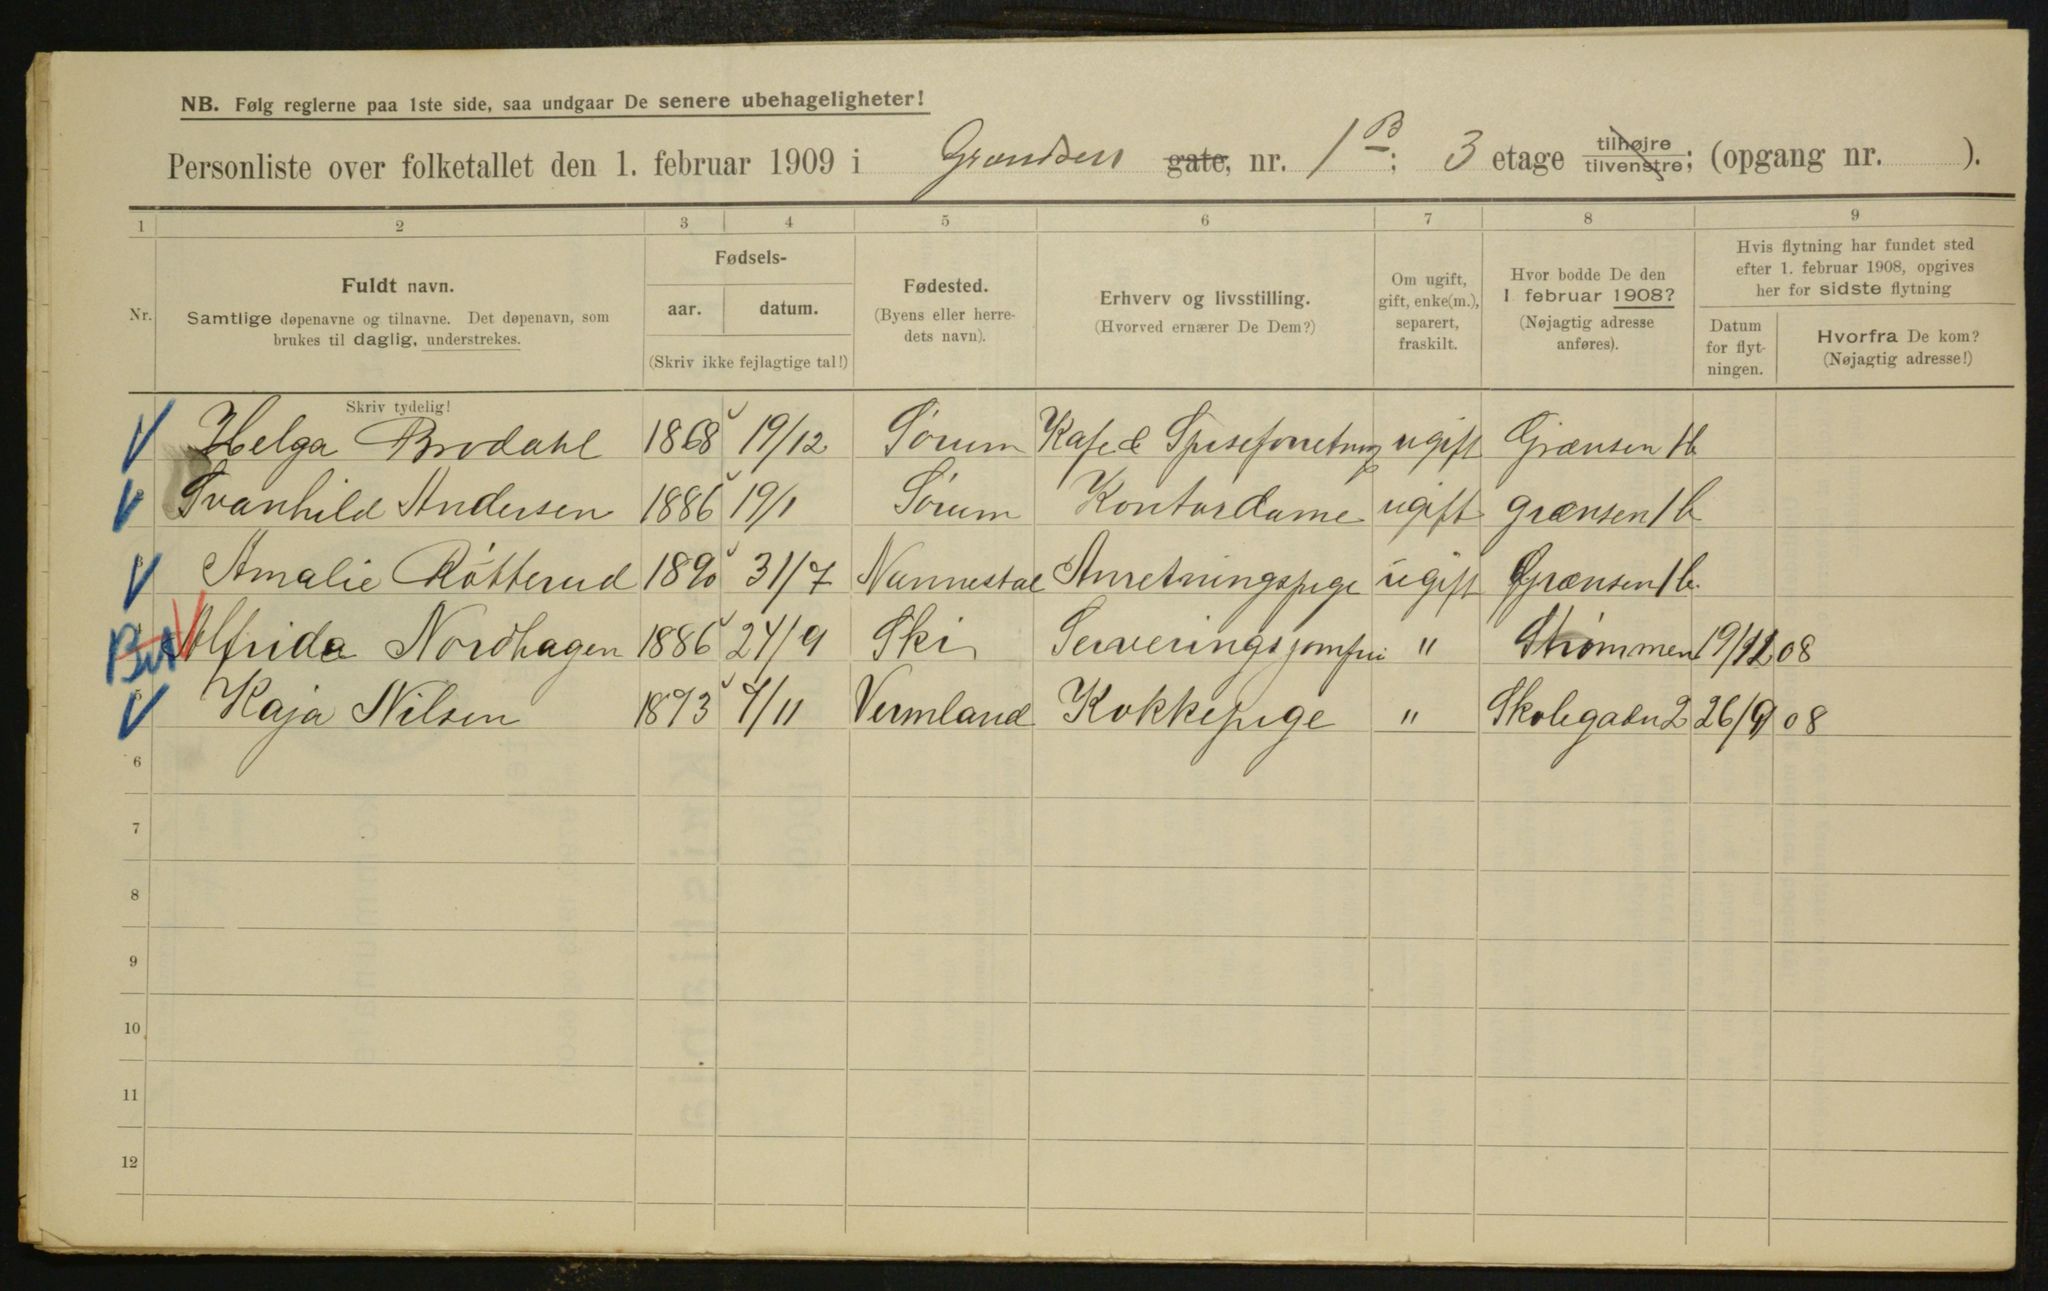 NB. Følg reglerne paa 1ste side, saa undgaar De senere ubehageligheter!
Personliste over folketallet den 1. februar 1909 i Grændsen gate, nr. 1B; 3 etage tilhøjre tilvenstre; (opgang nr. ).
1 2 3 4 5 6 7 8 9
Nr.
Fuldt navn.
Samtlige døpenavne og tilnavne. Det døpenavn, som
brukes til daglig, understrekes.
Skriv tydelig!
Fødsels-
aar. datum.
(Skriv ikke fejlagtige tal!)
Fødested.
(Byens eller herre-
dets navn).
Erhverv og livsstilling.
(Hvorved ernærer De Dem?)
Om ugift,
gift, enke(m.),
separert,
fraskilt.
Hvor bodde De den
1 februar 1908?
(Nøjagtig adresse
anføres).
Hvis flytning har fundet sted
efter 1. februar 1908, opgives
her for sidste flytning
Datum
for flyt-
ningen.
Hvorfra De kom?
(Nøjagtig adresse!)
Helga Brodahl 1868 19/12 Sørum Kafe & Spiseforretning ugift Grænsen 1b
Svanhild Andersen 1886 19/1 Sørum Kontordame ugift Grænsen 1b
Amalie Røtterud 1890 31/7 Nannestad Anretningspige ugift Grænsen 1b.
Alfrida Nordhagen 1886 24/9 Ski Serveringsjomfru " Strømmen 19/12 08
5 Kaja Nilsen 1873 7/11 Vermland Kokkepige " Skolegaden 2 26/9 08
6
7
8
9
10
11
12